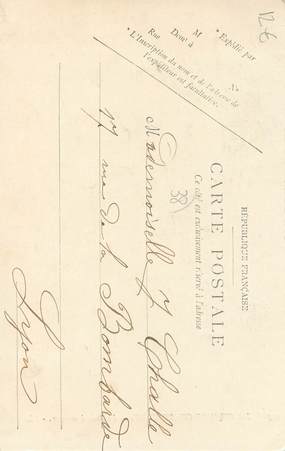 RÉPUBLIQUE FRANÇAISE
CARTE POSTALE
Ce côté est exclusivement réservé à l'adresse
38
* Expédié par
M
Demt à
Rue
No
* L'Inscription du nom et de l'adresse de
l'expéditeur est facultative.
12€
Mademoiselle J Challe
17 rue de la Bombarde
Lyon